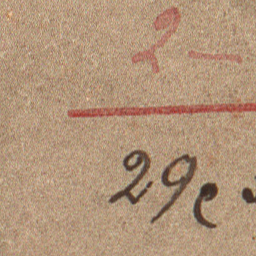 2 –
29e